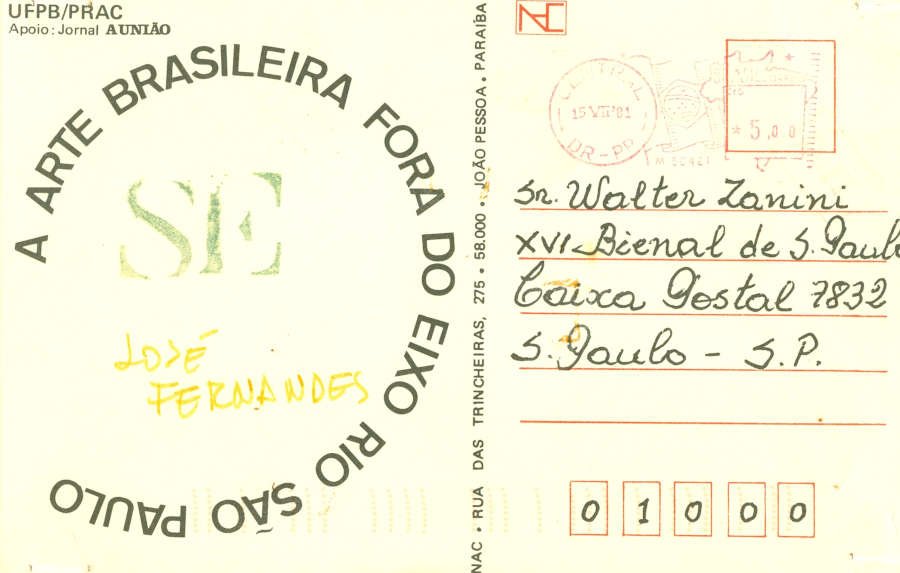 UFPB/PRAC
Apoio: Jornal A UNIÃO
A ARTE BRASILEIRA FORA DO EIXO RIO SÃO PAULO
SE
JOSÉ
FERNANDES
NAC • RUA DAS TRINCHEIRAS, 275 • 58.000 • JOÃO PESSOA • PARAÍBA
NAC
CENTRAL
15 VII 81
DR-PB
*5,00
Sr. Walter Zanini
XVI - Bienal de S. Paulo
Caixa Postal 7832
S. Paulo - S.P.
0 1 0 0 0